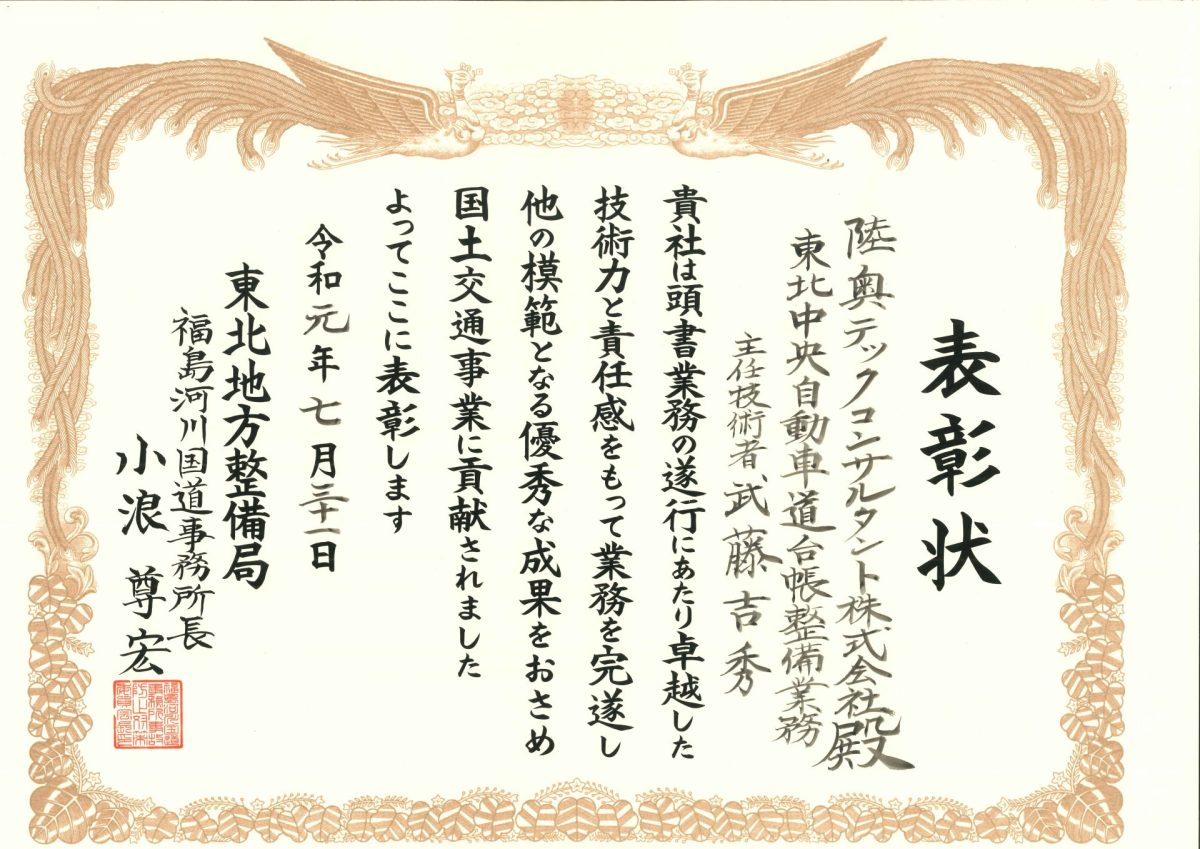 表彰状
陸奥テックコンサルタント株式会社殿
東北中央自動車道台帳整備業務
主任技術者 武藤吉秀
貴社は頭書業務の遂行にあたり卓越した
技術力と責任感をもって業務を完遂し
他の模範となる優秀な成果をおさめ
国土交通事業に貢献されました
よってここに表彰します
令和元年七月三十一日
東北地方整備局
福島河川国道事務所長
小浪尊宏